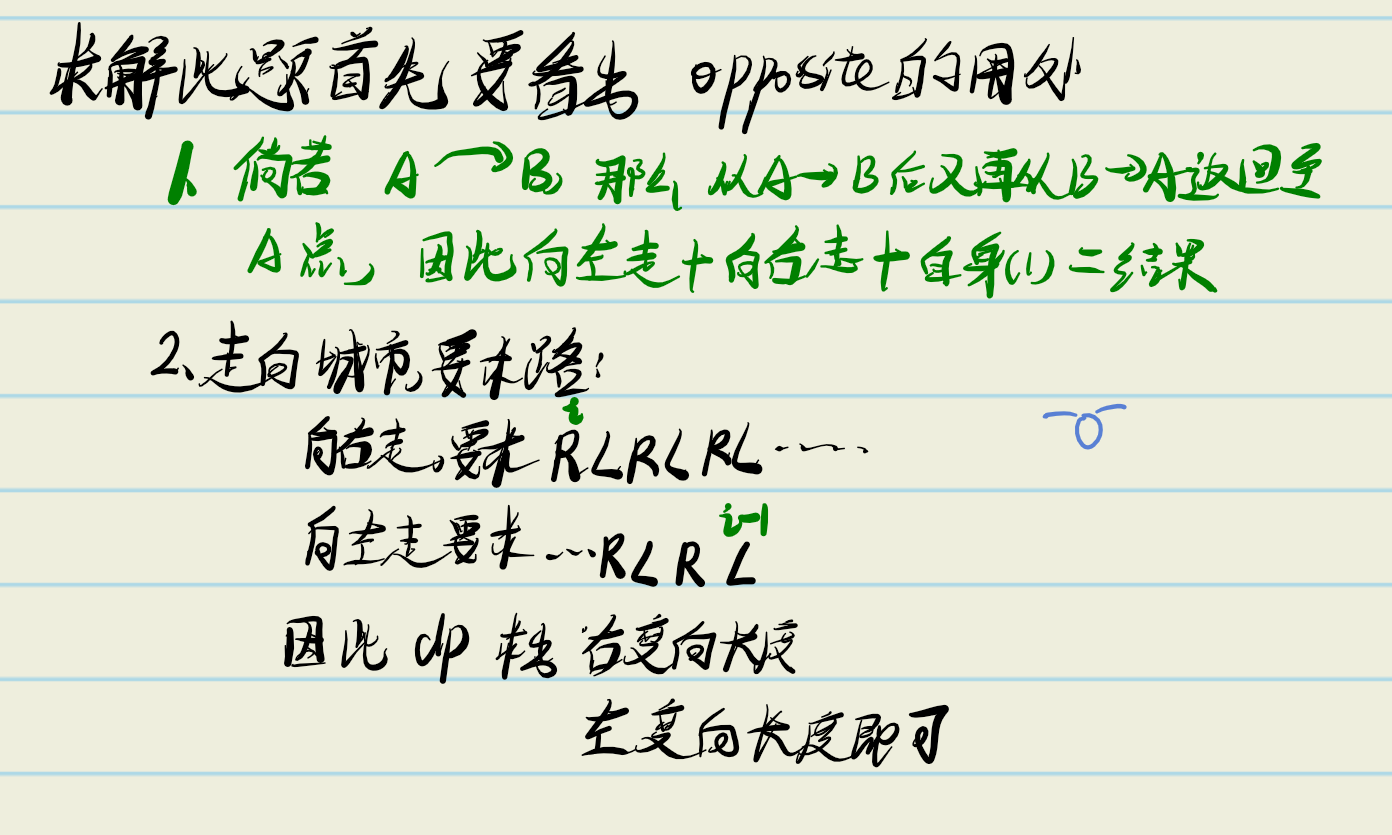 求解此题首先要看出 opposite的用处
1. 倘若 A→B, 那么从A→B后又再从B→A返回至
A点, 因此向左走+向右走+自身(1)=结果
2、走向城市,要求路:
i
向右走,要求 RLRLRL……
i-1
向左走要求…RLRL
因此 dp 求出 右变向长度
左变向长度即可